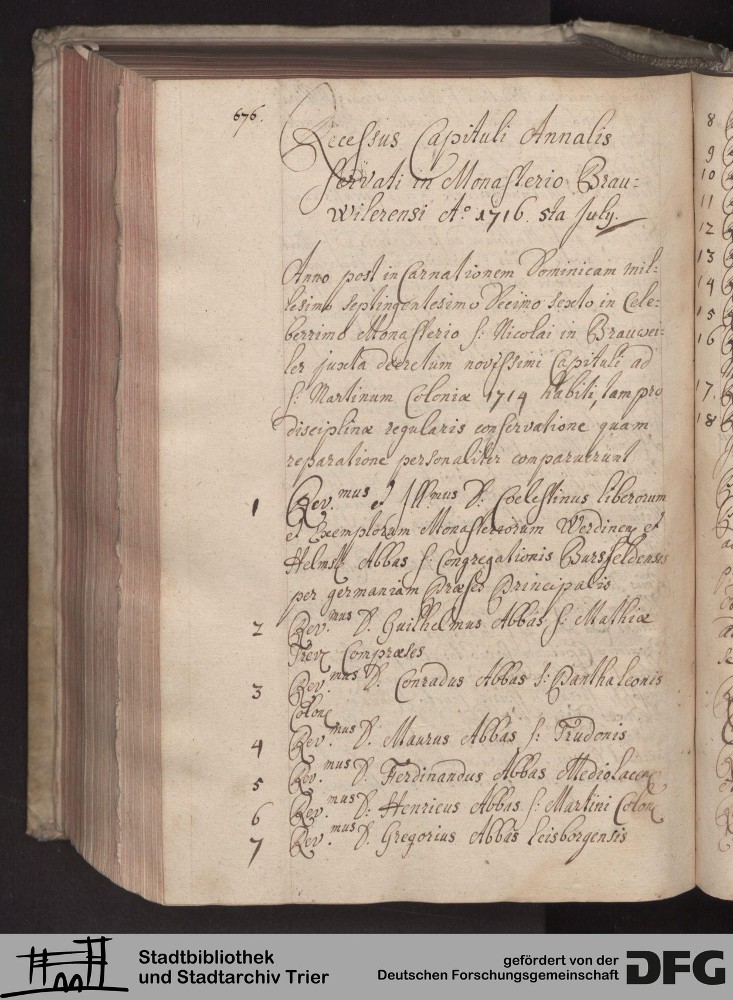 676.
Recessus Capituli Annalis
servati in Monasterio Brau=
wilerensi Aº 1716. 5ta July.
Anno post inCarnationem Dominicam mil=
lesimo septingentesimo Decimo sexto in Cele=
berrimo Monasterio S: Nicolai in Brauwei=
ler juxta decretum novissimi Capituli ad
S: Martinum Coloniæ 1714 habiti, tam pro
disciplinæ regularis conservatione quam
reparatione personaliter comparuerunt
1 Rev.mus et Illmus D. Coelestinus liberorum
et Exemptorum Monasteriorum Werdinen et
Helmst Abbas S: Congregationis Bursfeldensis
per germaniam Præses Principalis
2 Rev.mus D. Guilhelmus Abbas S: Mathiæ
Trev Compræses
3 Rev.mus D. Conradus Abbas S: Panthaleonis
Colon
4 Rev.mus D. Maurus Abbas S: Trudonis
5 Rev.mus D. Ferdinandus Abbas Mediolacen
6 Rev.mus D: Henricus Abbas S: Martini Colon
7 Rev.mus D. Gregorius Abbas leisborgensis
8
9
10
11
12
13
14
15
16
17.
18
Stadtbibliothek
und Stadtarchiv Trier
gefördert von der
Deutschen Forschungsgemeinschaft
DFG